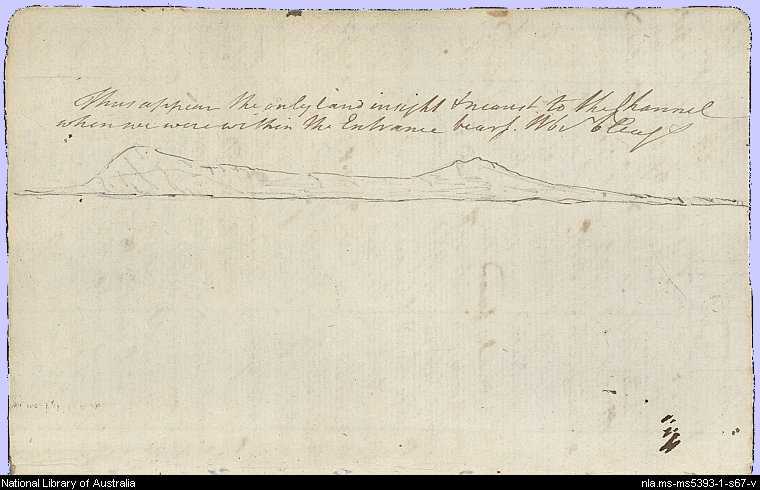 Thus appear the only land in sight & nearest to the Channel
when we were within the Entrance bearg.
National Library of Australia
nla.ms-ms5393-1-s67-v